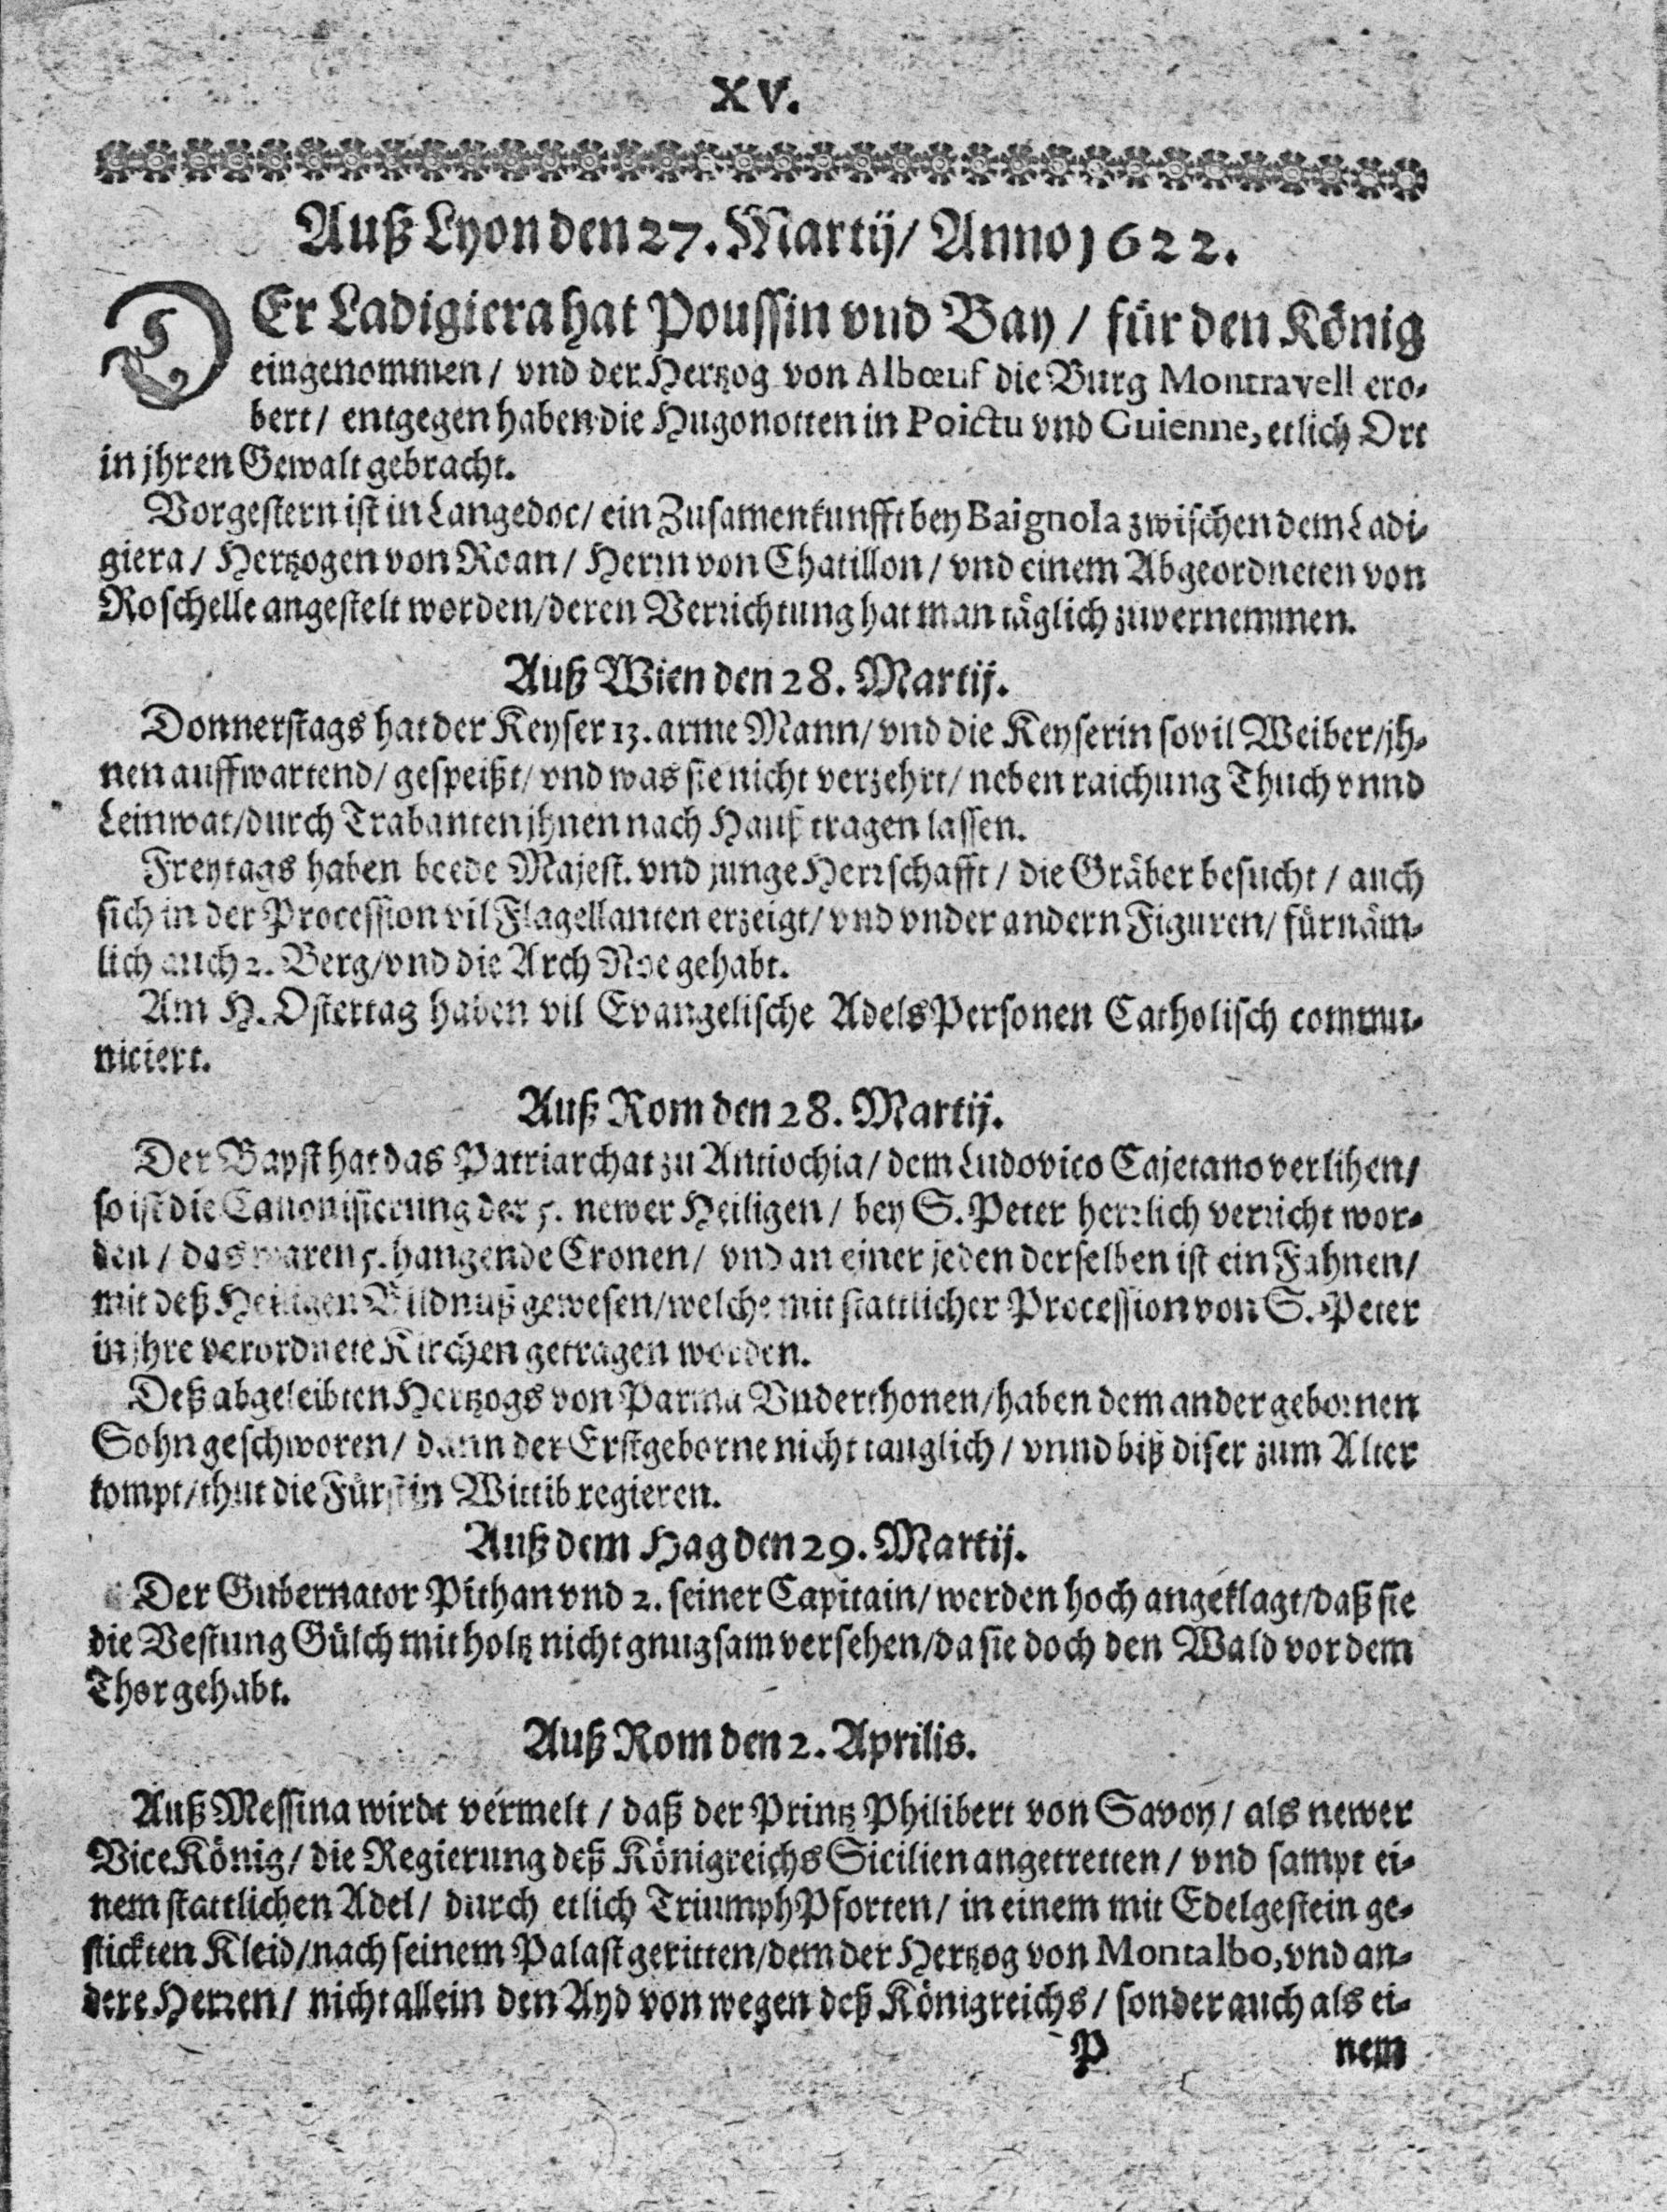 XV.
Auß Lyon den 27. Martij/ Anno 1622.
DEr Ladigiera hat Poussin vnd Bay / für den König
eingenommen / vnd der Hertzog von Albœuf die Burg Montravell ero-
bert / entgegen haben die Hugonotten in Poictu vnd Guienne, etlich Ort
in jhren Gewalt gebracht.
Vorgestern ist in Langedoc/ ein Zusamenkunfft bey Baignola zwischen dem Ladi-
giera / Hertzogen von Roan / Herrn von Chatillon / vnd einem Abgeordneten von
Roschelle angestelt worden/deren Verrichtung hat man täglich zuvernemmen.
Auß Wien den 28. Martij.
Donnerstags hat der Keyser 13. arme Mann/ vnd die Keyserin sovil Weiber/jh-
nen auffwartend/ gespeißt/ vnd was sie nicht verzehrt/ neben raichung Thuch vnnd
Leinwat/durch Trabanten jhnen nach Hauß tragen lassen.
Freytags haben beede Majest. vnd junge Herrschafft / die Gräber besucht / auch
sich in der Procession vil Flagellanten erzeigt/ vnd vnder andern Figuren/ fürnäm-
lich auch 2. Berg/vnd die Arch Noe gehabt.
Am H. Ostertag haben vil Evangelische AdelsPersonen Catholisch commu-
niciert.
Auß Rom den 28. Martij.
Der Bapst hat das Patriarchat zu Antiochia/ dem Ludovico Cajetano verlihen/
so ist die Canonisierung der 5. newer Heiligen / bey S. Peter herrlich verricht wor-
den / das waren 5. hangende Cronen/ vnd an einer jeden derselben ist ein Fahnen/
mit deß Heiligen Bildnuß gewesen/welche mit stattlicher Procession von S. Peter
in jhre verordnete Kirchen getragen worden.
Deß abgeleibten Hertzogs von Parma Vnderthonen/haben dem ander gebornen
Sohn geschworen/ dann der Erstgeborne nicht tauglich / vnnd biß diser zum Alter
kompt/thut die Fürstin Wittib regieren.
Auß dem Hag den 29. Martij.
Der Gubernator Pithan vnd 2. seiner Capitain/ werden hoch angeklagt/daß sie
die Vestung Gülch mit holtz nicht gnugsam versehen/da sie doch den Wald vor dem
Thor gehabt.
Auß Rom den 2. Aprilis.
Auß Messina wirdt vermelt / daß der Printz Philibert von Savoy / als newer
ViceKönig/ die Regierung deß Königreichs Sicilien angetretten / vnd sampt ei-
nem stattlichen Adel / durch etlich TriumphPforten/ in einem mit Edelgestein ge-
stickten Kleid/nach seinem Palast geritten/dem der Hertzog von Montalbo, vnd an-
dere Herren / nicht allein den Ayd von wegen deß Königreichs / sonder auch als ei-
P nem